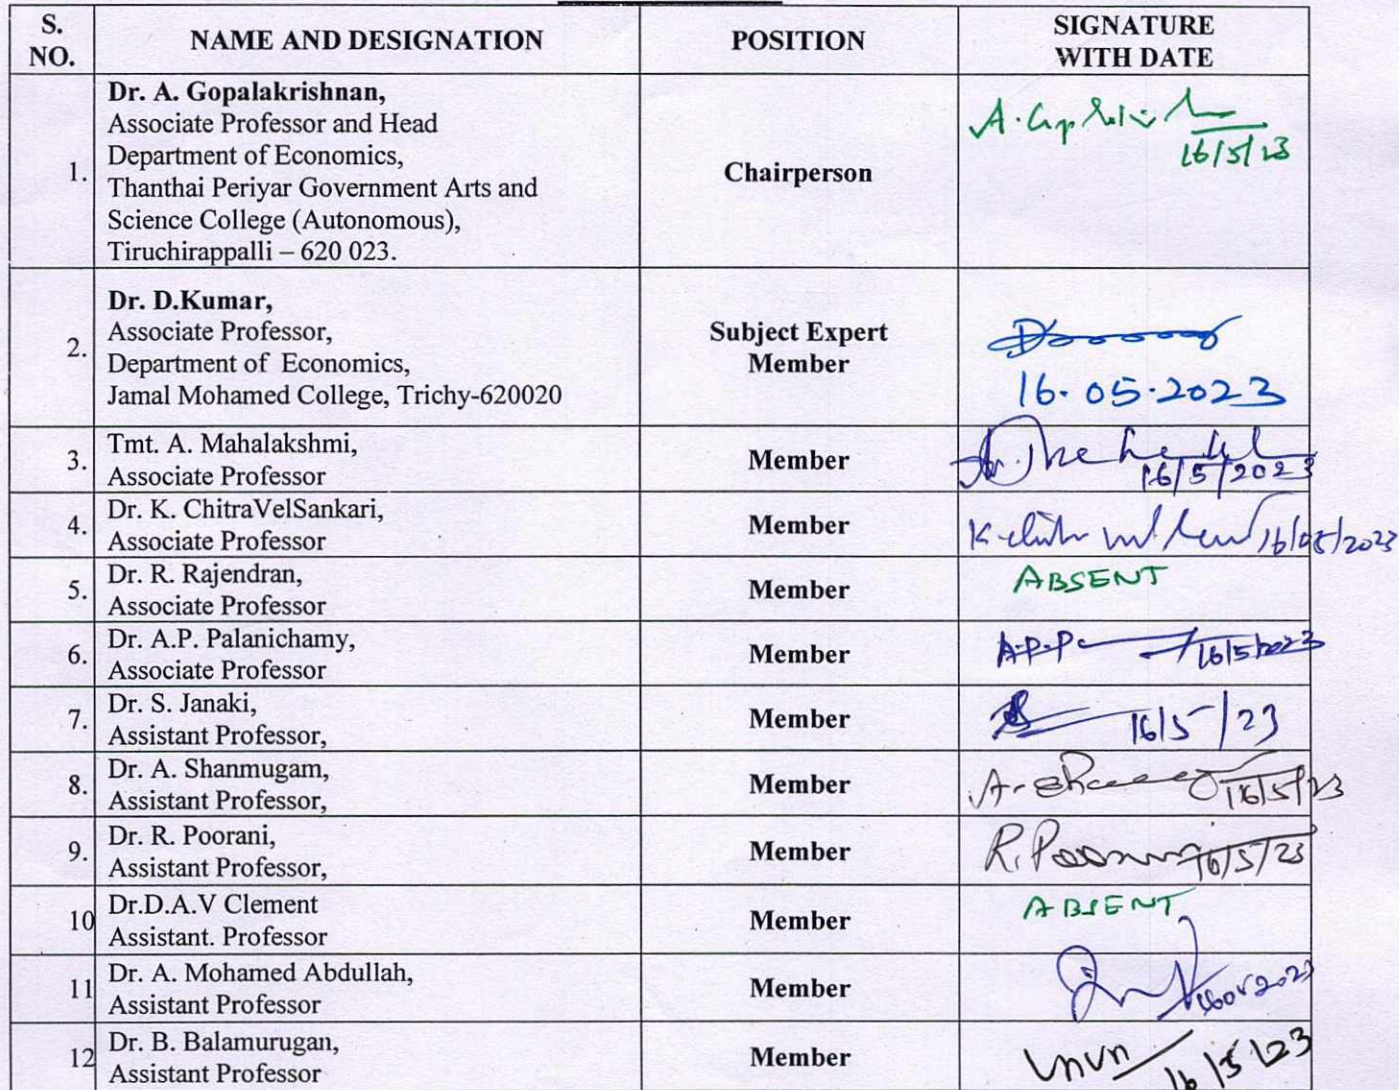 S.
NO.
NAME AND DESIGNATION
POSITION
SIGNATURE
WITH DATE
1.
Dr. A. Gopalakrishnan,
Associate Professor and Head
Department of Economics,
Thanthai Periyar Government Arts and
Science College (Autonomous),
Tiruchirappalli – 620 023.
Chairperson
16/5/23
2.
Dr. D.Kumar,
Associate Professor,
Department of Economics,
Jamal Mohamed College, Trichy-620020
Subject Expert
Member
16.05.2023
3.
Tmt. A. Mahalakshmi,
Associate Professor
Member
16/5/2023
4.
Dr. K. ChitraVelSankari,
Associate Professor
Member
16/05/2023
5.
Dr. R. Rajendran,
Associate Professor
Member
ABSENT
6.
Dr. A.P. Palanichamy,
Associate Professor
Member
A.P.P 16/5/2023
7.
Dr. S. Janaki,
Assistant Professor,
Member
16/5/23
8.
Dr. A. Shanmugam,
Assistant Professor,
Member
16/5/23
9.
Dr. R. Poorani,
Assistant Professor,
Member
R. 16/5/23
10
Dr.D.A.V Clement
Assistant. Professor
Member
ABSENT
11
Dr. A. Mohamed Abdullah,
Assistant Professor
Member
12
Dr. B. Balamurugan,
Assistant Professor
Member
16/5/23